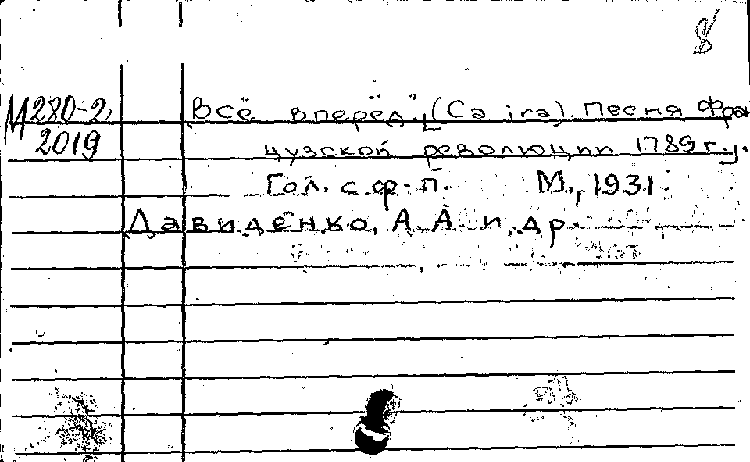 8
М280-2,
2019
"Всё вперёд". (Ca ira). Песня фран
цузской революции 1789 г. у.
Гол. с ф-п. М., 1931.
Давиденко, А. А. и др.